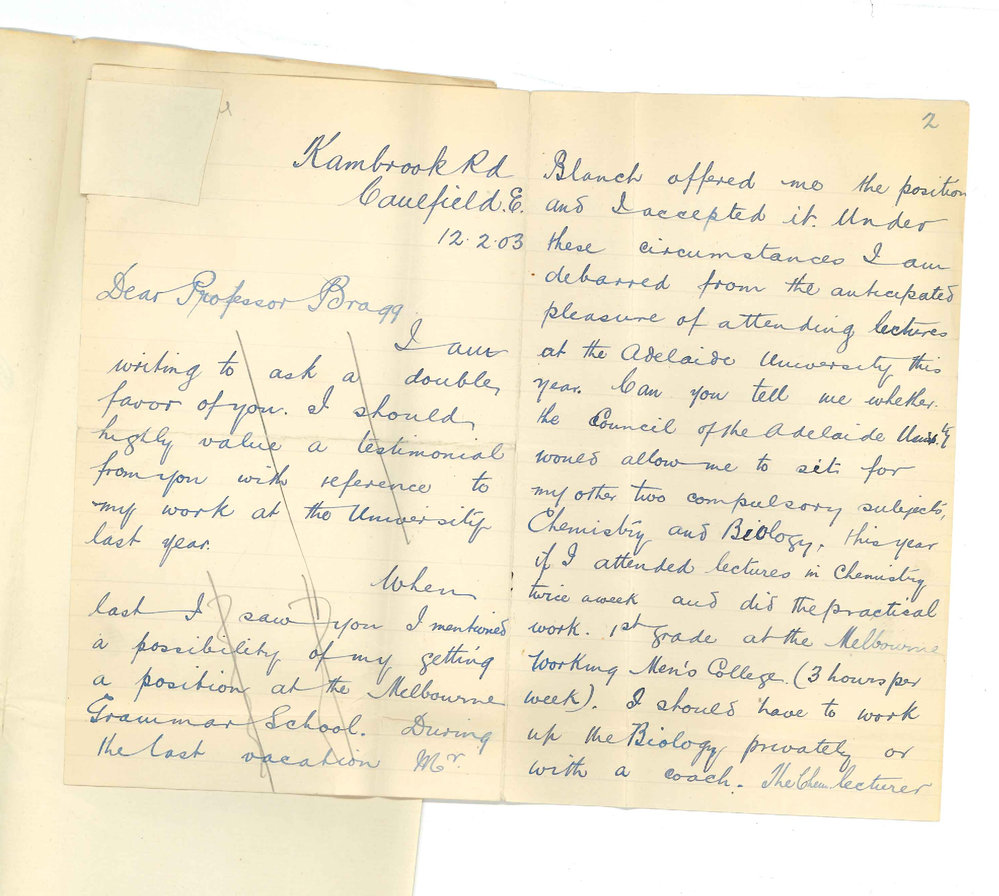 Kambrook Rd
Caulfield. E.
12. 2. 03
Dear Professor Bragg
I am
writing to ask a double
favor of you. I should
highly value a testimonial
from you with reference to
my work at the University
last year.
When
last I saw you I mentioned
a possibility of my getting
a position at the Melbourne
Grammar School. During
the last vacation Mr.
2
Blanch offered me the position
and I accepted it. Under
these circumstances I am
debarred from the anticipated
pleasure of attending lectures
at the Adelaide University this
year. Can you tell me whether
the Council of the Adelaide
would allow me to sit for
my other two compulsory subjects,
Chemistry and Biology, this year
if I attended lectures in Chemistry
twice a week and did the practical
work. 1st grade at the Melbourne
Working Men's College. (3 hours per
week). I should have to work
up the Biology privately or
with a coach. The Chem. lecturer